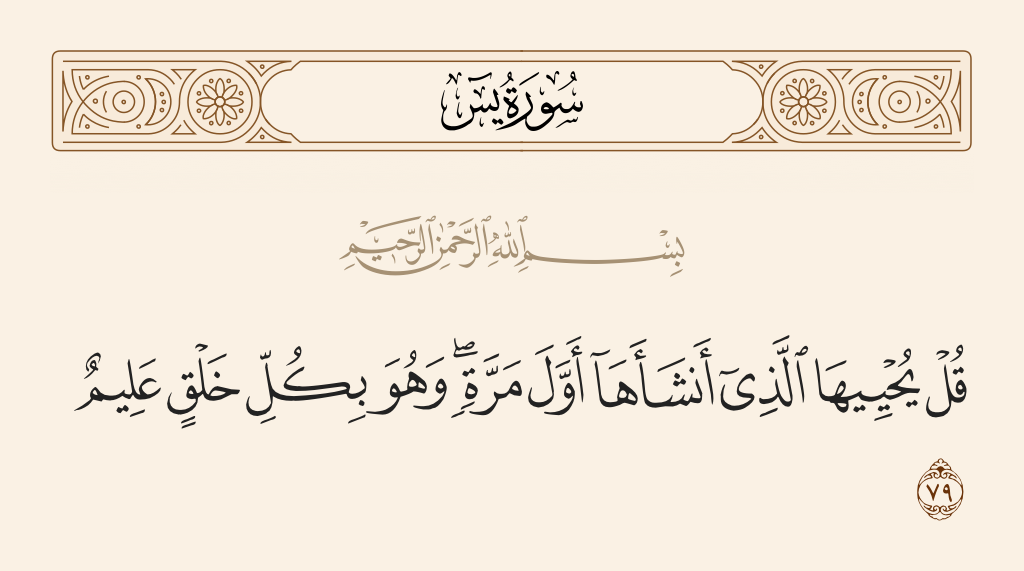 سُورَةُ يسٓ
بِسْمِ ٱللَّهِ ٱلرَّحْمَٰنِ ٱلرَّحِيمِ
قُلْ يُحْيِيهَا ٱلَّذِىٓ أَنشَأَهَآ أَوَّلَ مَرَّةٍۢ ۖ وَهُوَ بِكُلِّ خَلْقٍ عَلِيمٌ
٧٩